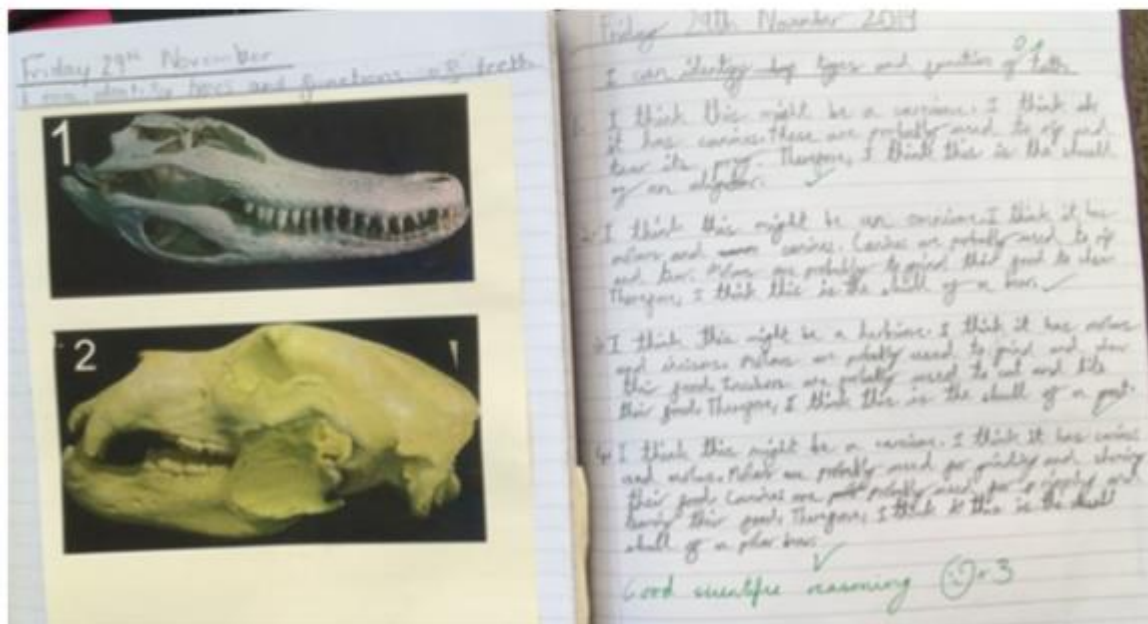 Friday 29th November
I can identify types and functions of teeth
1
2
Friday 29th November 2019
I can identify types and function of teeth
I think this might be a carnivore. I think
it has canines. These are probably used to rip and
tear its prey. Therefore, I think this is the skull
of an aligator.
I think this might be an omnivore. I think it has
molars and canines. Canines are probably used to rip
and tear. Molars are probably to grind their food to chew
Therefore, I think this is the skull of a bear.
I think this might be a herbivore. I think it has molars
and incisors. Molars are probably used to grind and chew
their food. Incisors are probably used to cut and bite
their food. Therefore, I think this is the skull of a goat.
I think this might be a carnivore. I think it has canines
and molars. Molars are probably used for grinding and chewing
their food. Canines are probably used for ripping and
tearing their food. Therefore, I think this is the
skull of a polar bear.
Good scientific reasoning 3